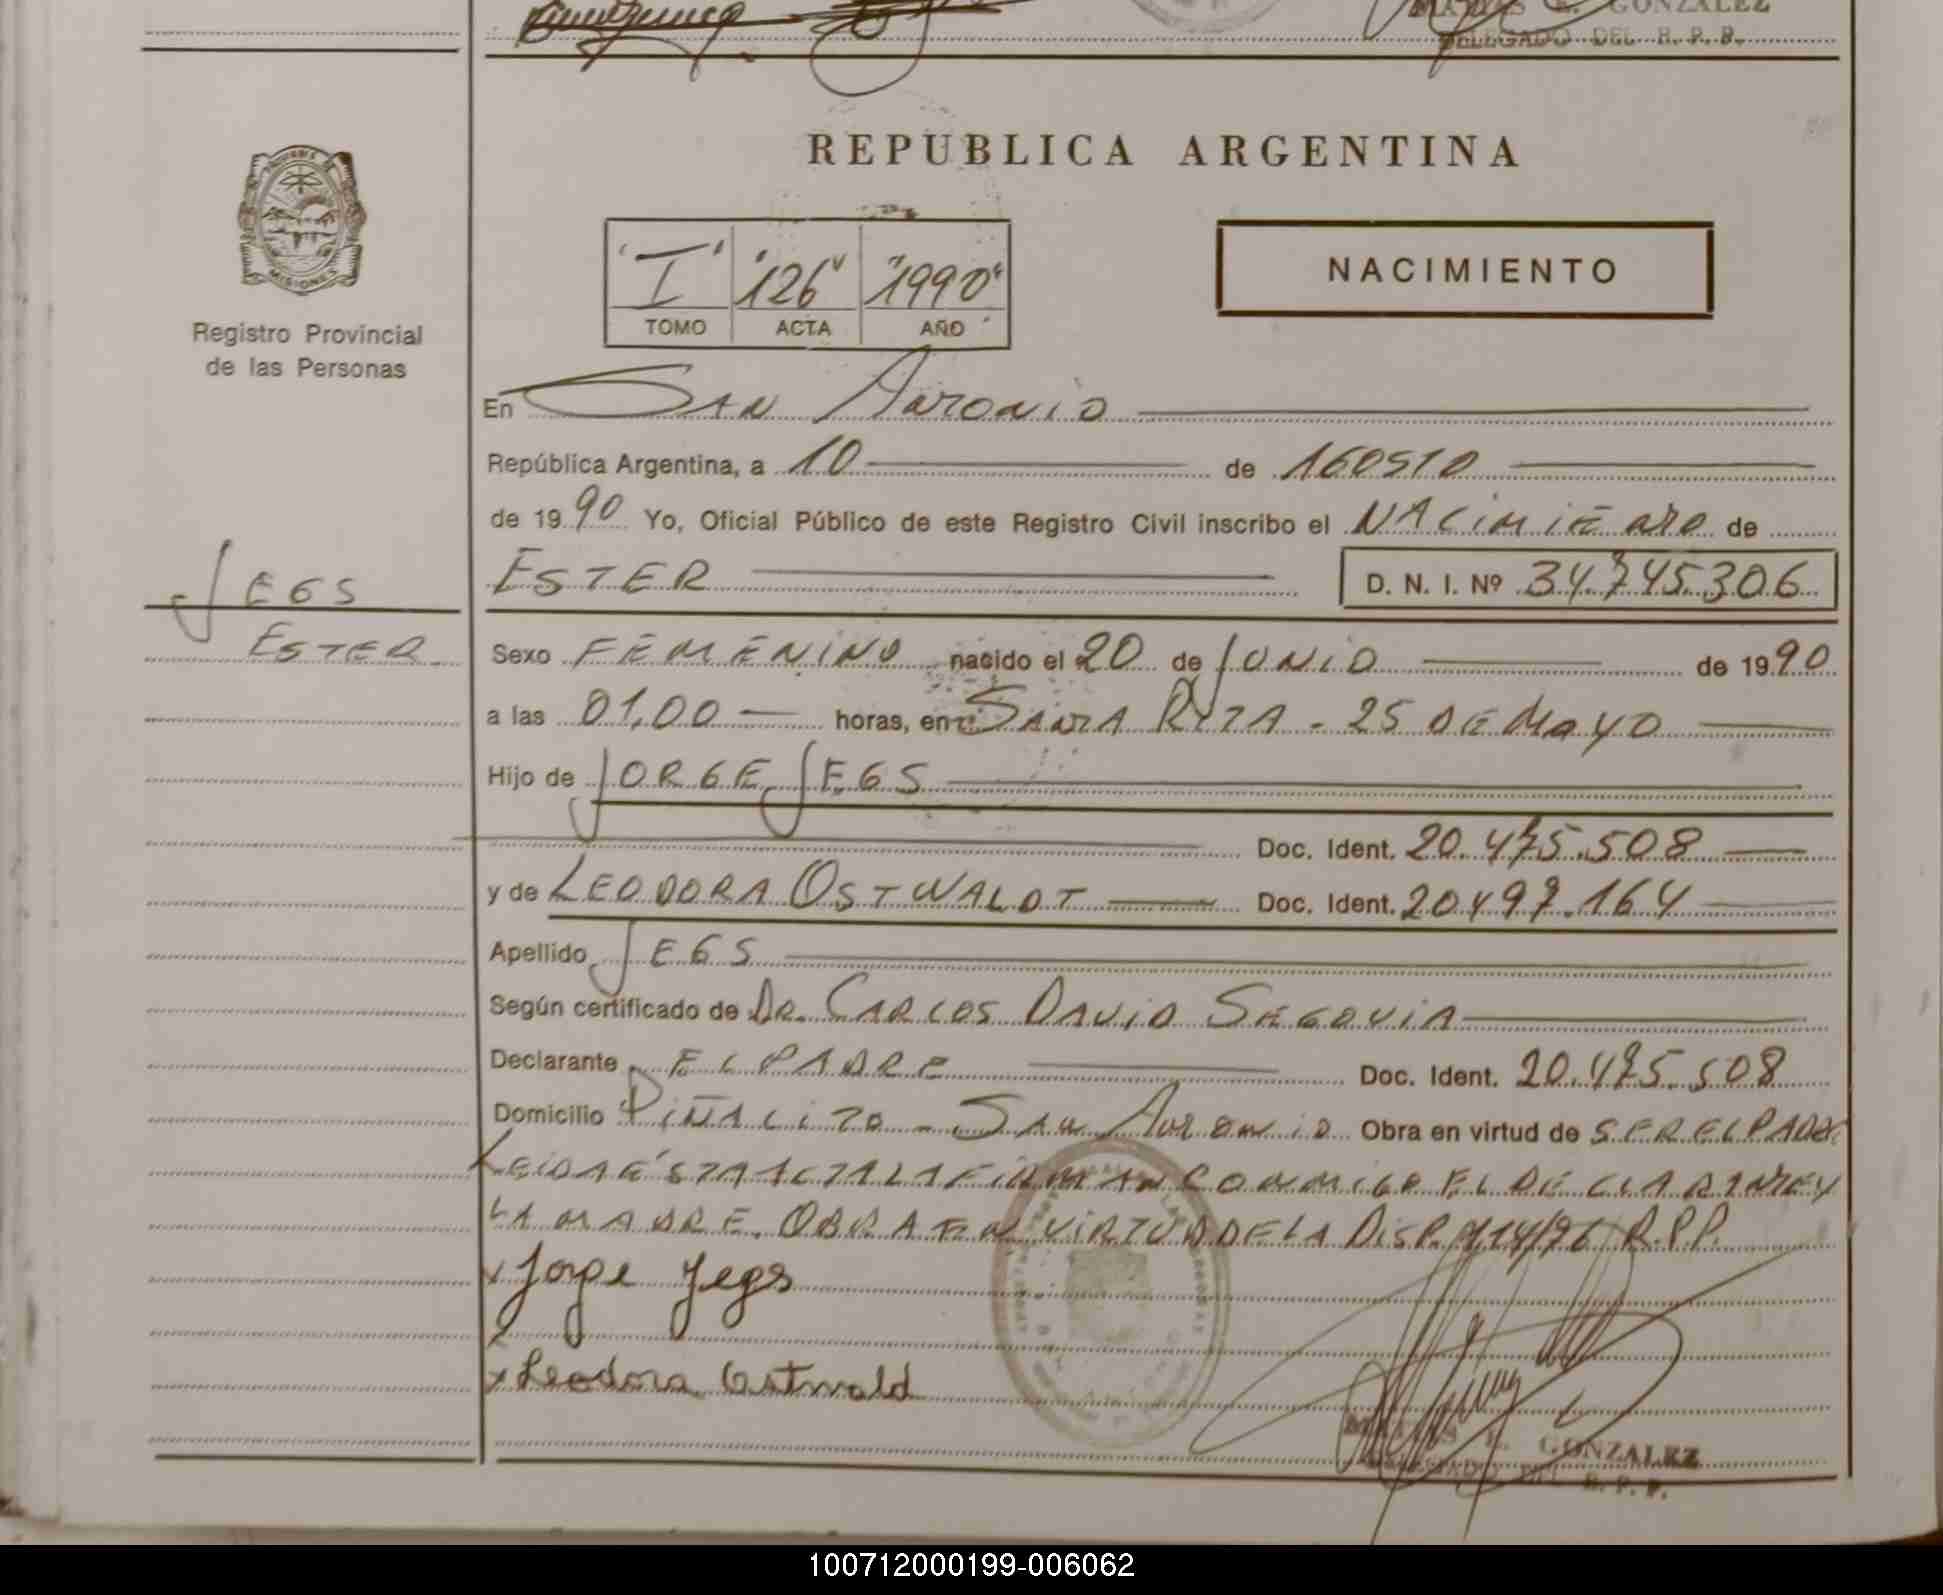 GONZALEZ
DELEGADO DEL R. P. P.
REPUBLICA ARGENTINA
MISIONES
Registro Provincial
de las Personas
"I" "126" "1990"
TOMO ACTA AÑO
NACIMIENTO
En San Antonio
República Argentina, a 10 de Agosto
de 1990 Yo, Oficial Público de este Registro Civil inscribo el NACIMIENTO de
ESTER D. N. I. Nº 34.745.306
JEGS
ESTER
Sexo FEMENINO nacido el 20 de JUNIO de 1990
a las 01,00 horas, en SANTA RITA - 25 DE MAYO
Hijo de JORGE JEGS
Doc. Ident. 20.475.508
y de LEODORA OSTWALDT Doc. Ident. 20.497.164
Apellido JEGS
Según certificado de DR. CARLOS DAVID SEGOVIA
Declarante EL PADRE Doc. Ident. 20.475.508
Domicilio PIÑALITO - SAN ANTONIO Obra en virtud de SER EL PADRE
LEIDA ÉSTA ACTA LA FIRMAN CONMIGO EL DECLARANTE Y
LA MADRE. OBRA EN VIRTUD DE LA DISP. 114/76 R.P.P.
x Jorge Jegs
x Leodora Ostwald
GONZALEZ
DELEGADO DEL R. P. P.
100712000199-006062